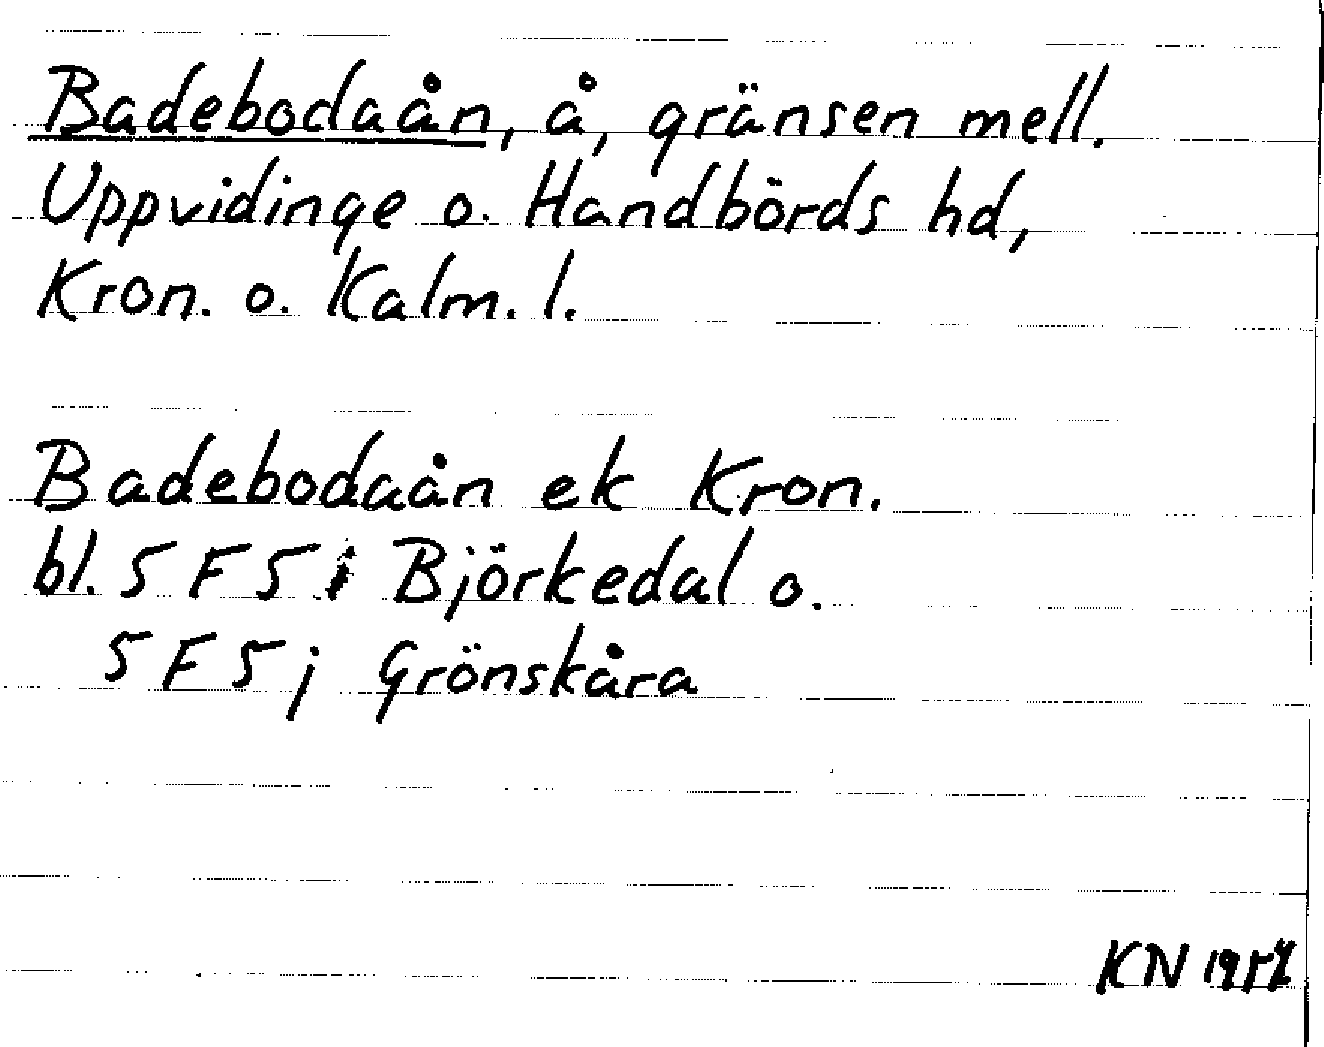 Badebodaån, å, gränsen mell.
Uppvidinge o. Handbörds hd,
Kron. o. Kalm. l.
Badebodaån ek Kron.
bl. 5 F 5 i Björkedal o.
5 F 5 j Grönskåra
KN